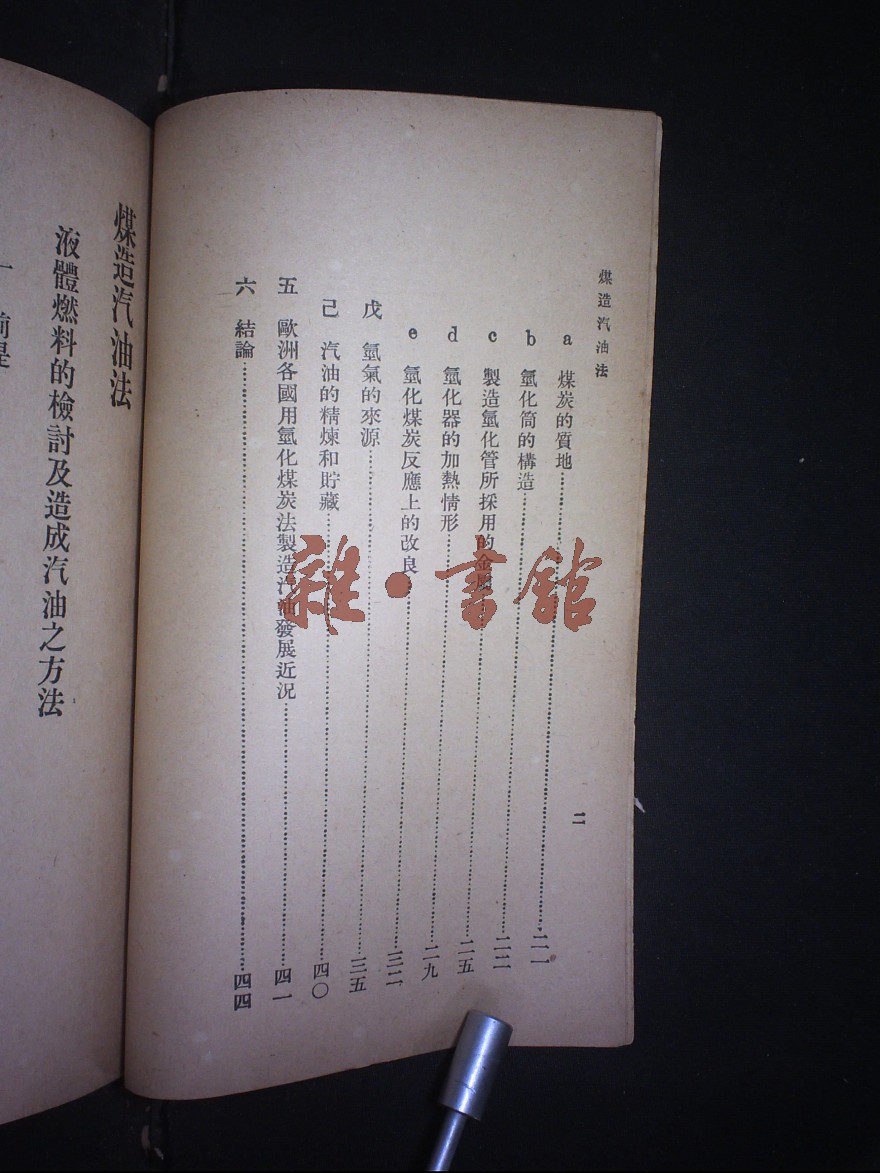 煤造汽油法
二
a 煤炭的質地……二一
b 氫化筒的構造……二二
c 製造氫化管所採用的金屬……二五
d 氫化器的加熱情形……二九
e 氫化煤炭反應上的改良……三二
戊 氫氣的來源……三五
己 汽油的精煉和貯藏……四〇
五 歐洲各國用氫化煤炭法製造汽油發展近況……四一
六 結論……四四
煤造汽油法
液體燃料的檢討及造成汽油之方法
一
雜·書館